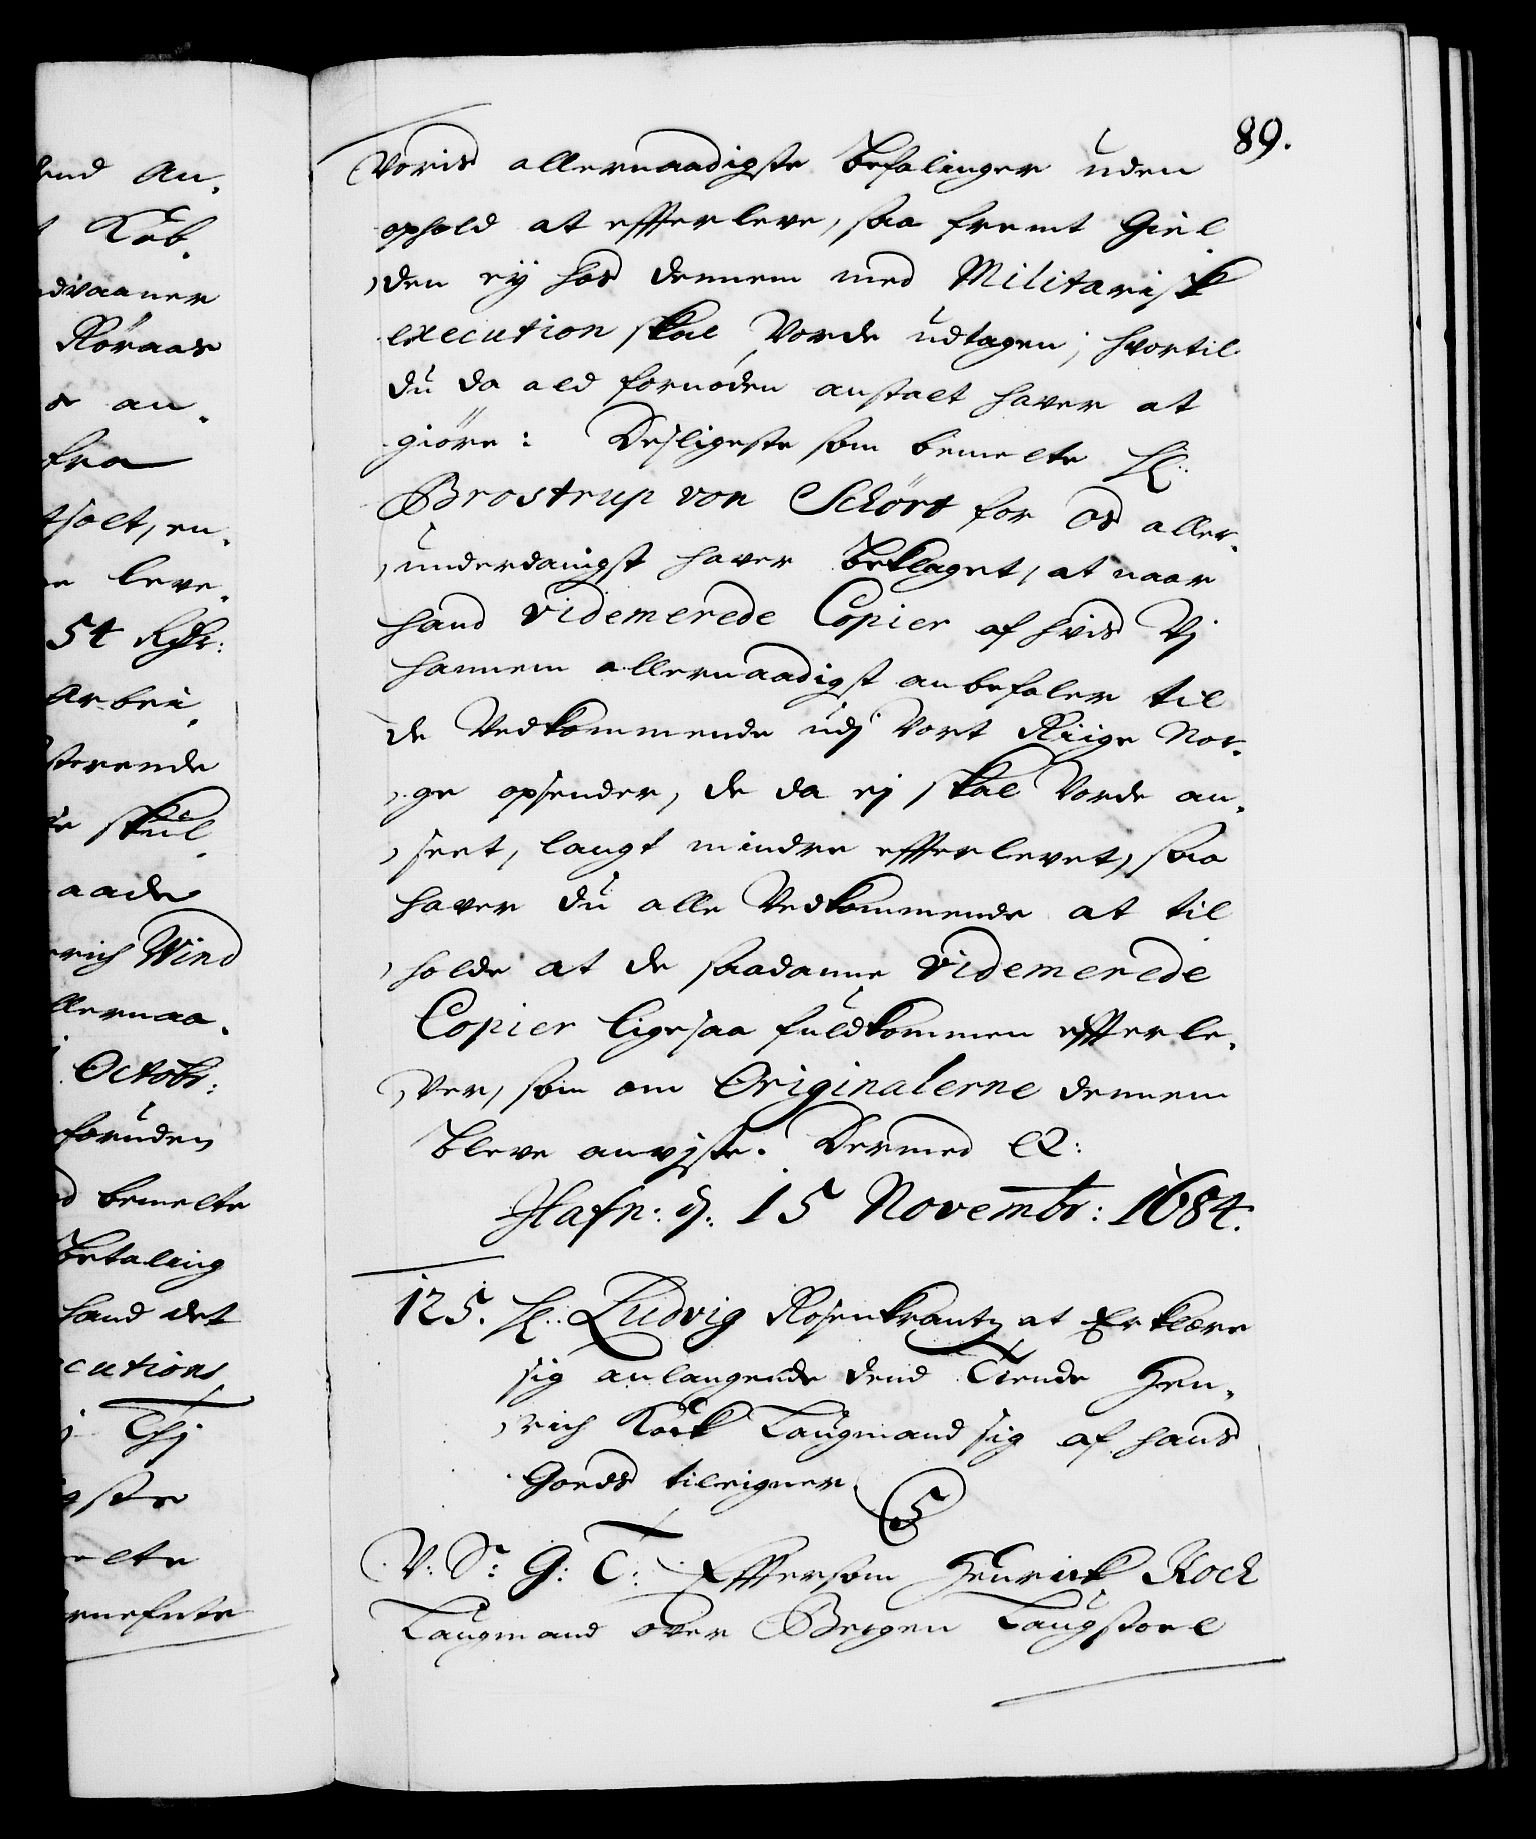 89.
Voris allernaadigste Befalinger uden
ophold at efterleve, saa fremt Giel,
,den eÿ hos dennem med Militarisk
execution skal Vorde udtagen, hvortil
du da ald fornöden anstalt haver at
giöre: Desligeste som bemelte H:
Brostrup von Schört for Os aller,
,underdanigst haver Beklaget, at naar
hand Videmerede Copier af hvis Vj
hannem allernaadigst anbefaler til
de Vedkommende udj Vort Riige Nor,
,ge opsender, de da ej skal Vorde an,
,seet, langt mindre efterlevet, saa
haver du alle Vedkommende at til
,holde at de saadanne Videmerede
Copier ligesaa fuldkommen efterle,
,ver, som om Originalerne dennem
bleve anvjste. Dermed &:
Hafn: d: 15 Novembr: 1684.
125. H: Ludvig Rosenkrantz at Erklære
sig anlangende dend Tiende Hen,
,rich Köck Laugmand sig af hans
Goeds tileigner.
V: Sr: G: T: Eftersom Henrick Koch
Laugmand over Bergen Laugstoel
end An,
Kob,
dvaaner
Röraas
an,
fra
tholt, en,
leve,
54 Rdr:
Arbei,
sterende
skul,
aade
rich Wind
llernaa,
Octobr:
foruden
d bemelte
Betaling
hand det
cutions
Thj
gste
elte